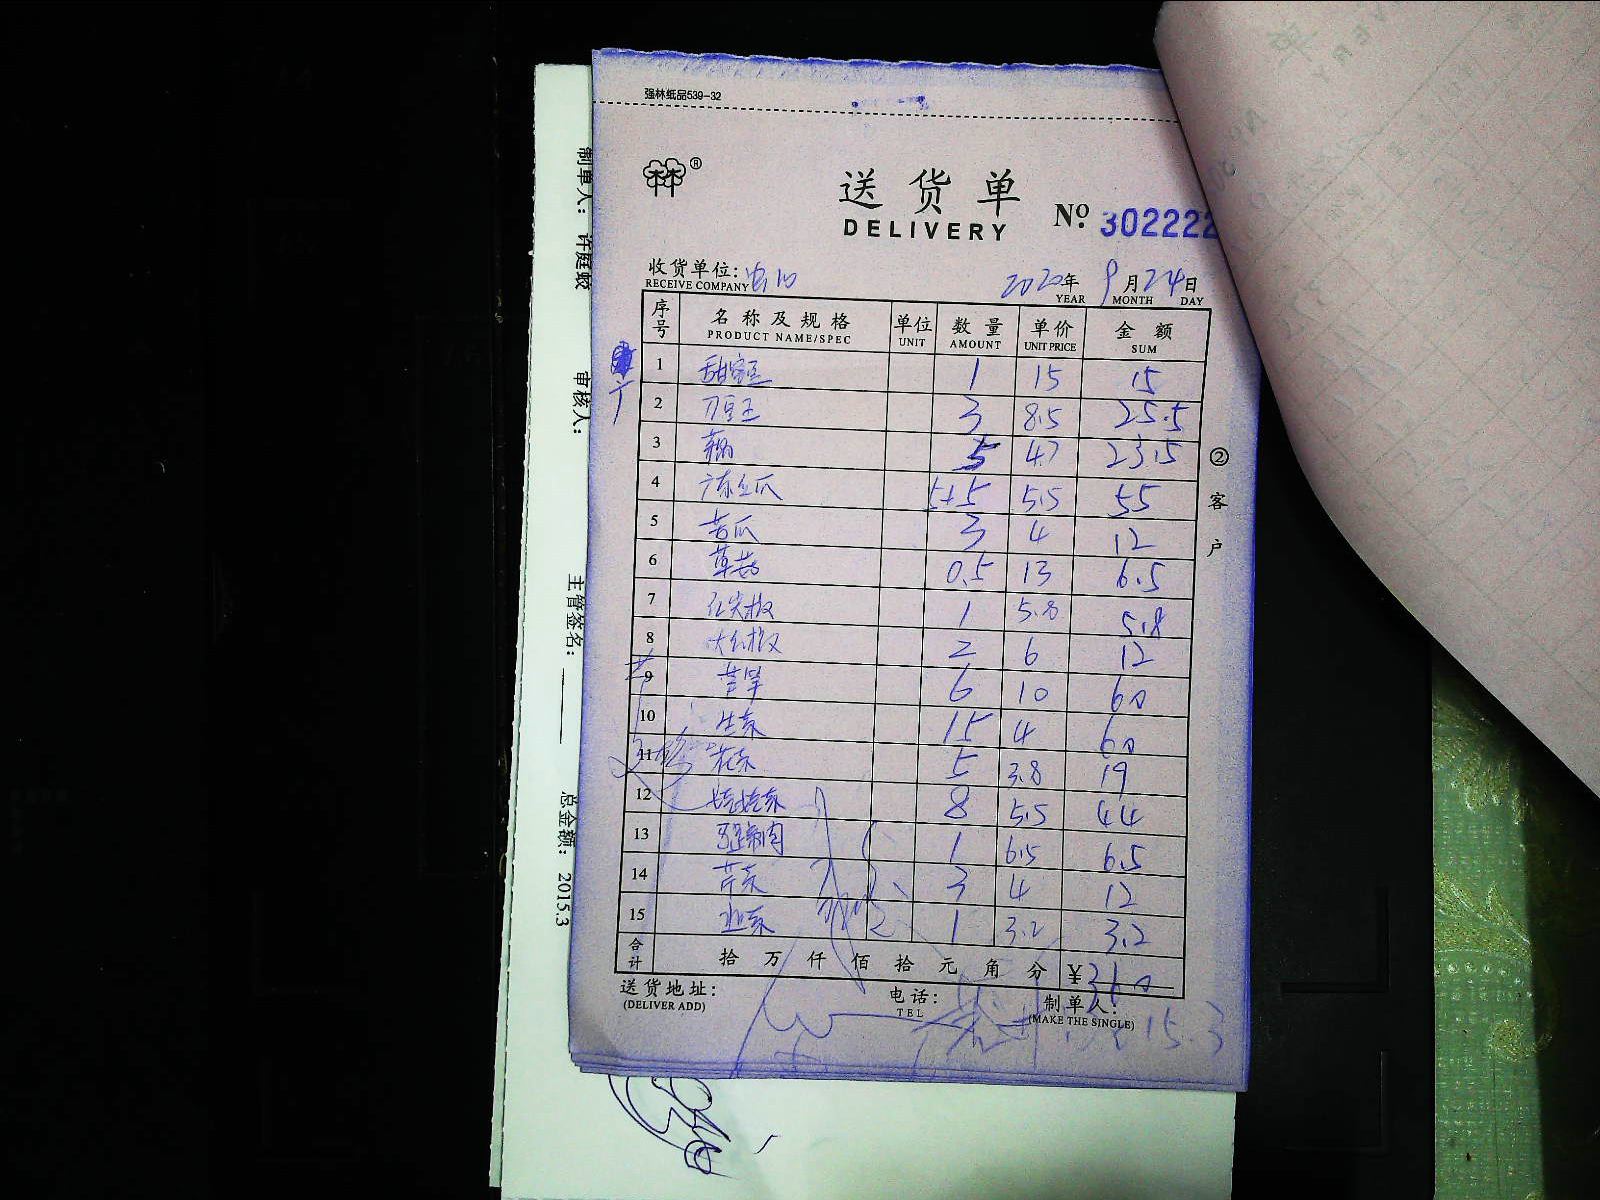 强林纸品539-32
®
送货单
DELIVERY
№ 302222
收货单位:
RECEIVE COMPANY
2020年 9月24日
YEAR MONTH DAY
序号 名称及规格 单位 数量 单价 金额
PRODUCT NAME/SPEC UNIT AMOUNT UNIT PRICE SUM
1 甜蜜豆 1 15 15
2 刀豆 3 8.5 25.5
3 5 4.7 23.5
4 广东丝瓜 5+5 5.5 55
5 苦瓜 3 4 12
6 草菇 0.5 13 6.5
7 红尖椒 1 5.8 5.8
8 大红椒 2 6 12
9 6 10 60
10 生菜 15 4 60
11 花菜 5 3.8 19
12 娃娃菜 8 5.5 44
13 1 6.5 6.5
14 芹菜 3 4 12
15 1 3.2 3.2
合计 拾 万 仟 佰 拾 元 角 分 ¥360
送货地址:
(DELIVER ADD)
电话:
TEL
制单人:
(MAKE THE SINGLE)
②客户
制单人: 许庭蛟
审核人:
主管签名:
总金额: 2015.3